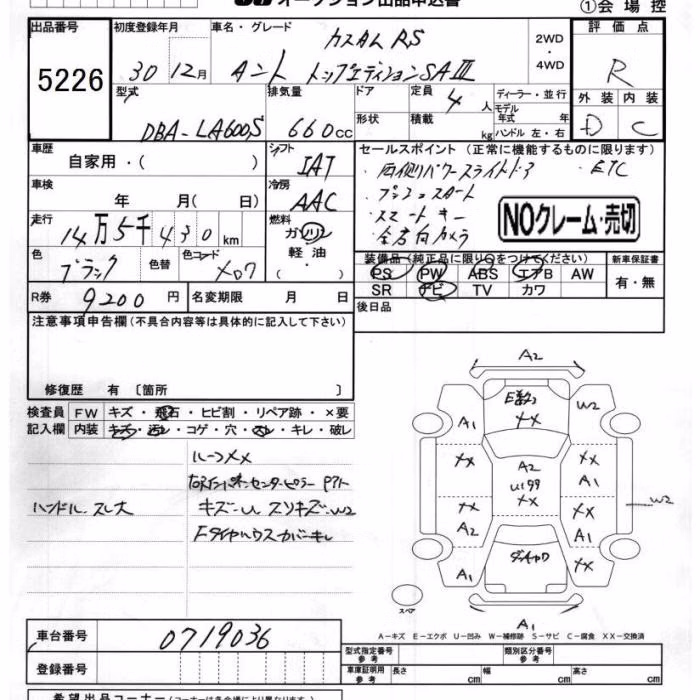 オークション出品申込書
①会場控
出品番号
5226
初度登録年月
30年12月
車名・グレード
カスタム RS
タント トップエディションSAⅢ
2WD
・
4WD
評価点
R
外装 内装
D C
型式
DBA-LA600S
排気量
660cc
ドア
形状
定員
4人
積載
kg
ディーラー・並行
モデル
年式 年
ハンドル 左・右
車歴
自家用・( )
シフト
IAT
車検
年 月( 日)
冷房
AAC
走行
14万5千430km
燃料
ガソリン
軽油
・( )
色
ブラック
色替
色コード
X07
R券
9200円
名変期限 月 日
セールスポイント (正常に機能するものに限ります)
・両側パワースライドドア ・ETC
・プッシュスタート
・スマートキー
・全方向カメラ
NOクレーム・売切
装備品 (純正品に限り○をつけてください)
PS PW ABS エアB AW
SR ナビ TV カワ
新車保証書
有・無
後日品
注意事項申告欄(不具合内容等は具体的に記入して下さい)
修復歴 有 〔箇所 〕
検査員
記入欄
FW キズ・飛石・ヒビ割・リペア跡・×要
内装 キズ・汚レ・コゲ・穴・スレ・キレ・破レ
ルーフXX
ハンドル スレ大
キズ・U スソキズ・W2
FタイヤハウスカバーキレA2
A1
W2
XX
XX
A2
U199
XX
XX
A1
XX
A2
XX
A1
W2
A1
XX
スペア
A1
A-キズ E-エクボ U-凹み W-補修跡 S-サビ C-腐食 XX-交換済
車台番号
0719036
登録番号
型式指定番号
参考
類別区分番号
参考
車庫証明用
参考
長さ cm 幅 cm 高さ cm
希望出品コーナー